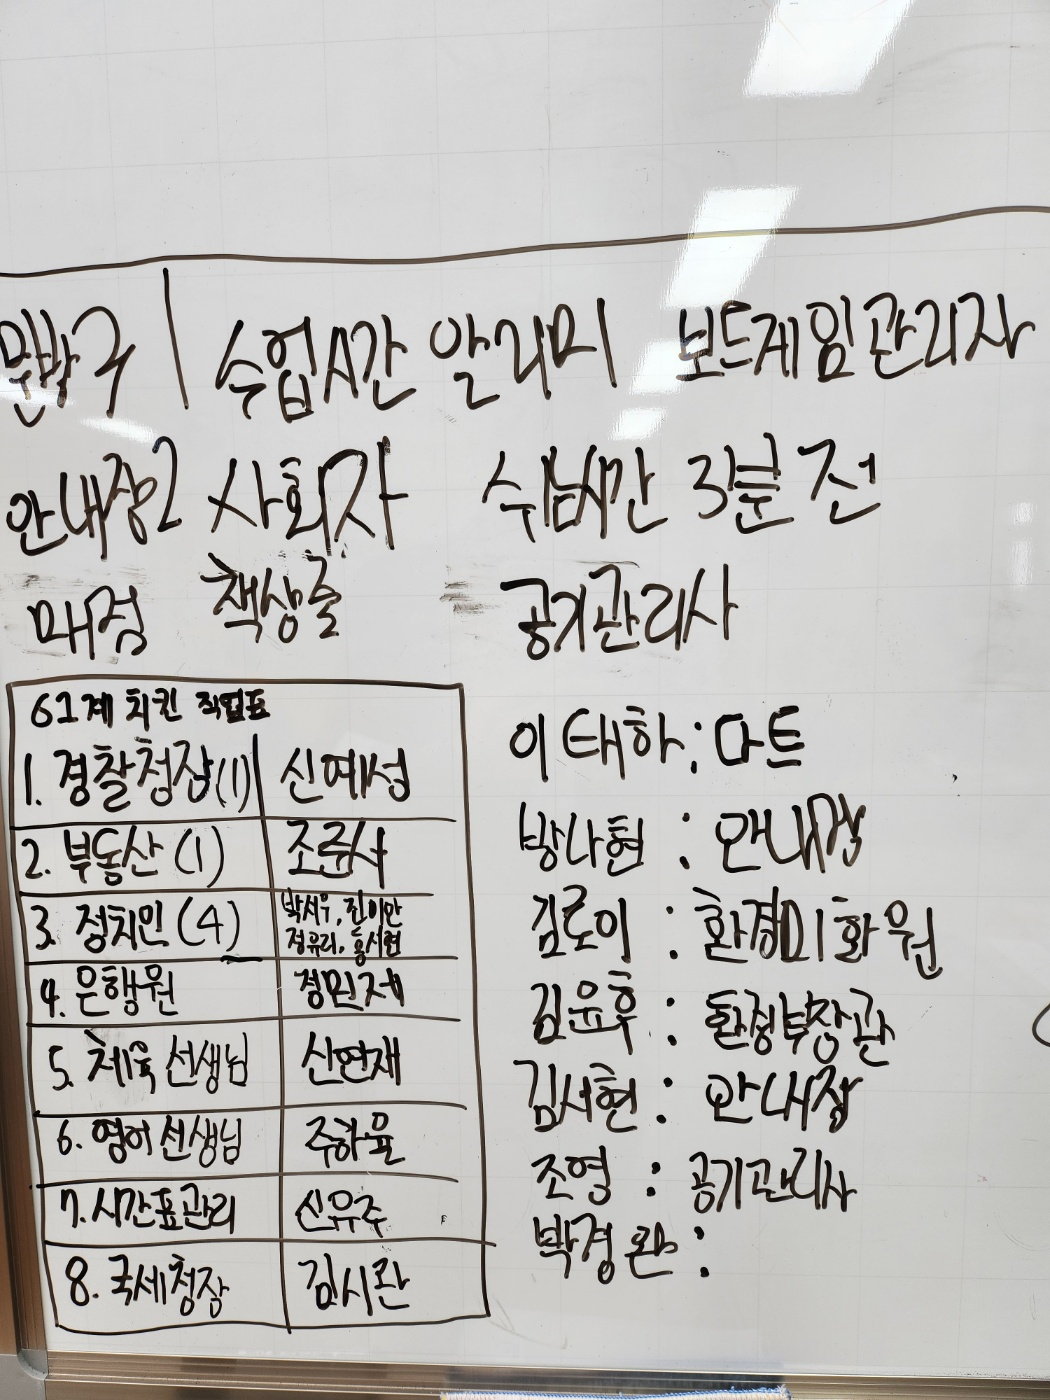 문방구 1 수업시간 알리미 보드게임관리자
안내장2 사회자 쉬는시간 3분 전
매점 책상줄 공기관리사
61계 치킨 직업표
1. 경찰청장(1) 신예성
2. 부동산(1) 조준서
3. 정치인(4) 박서우, 진이안
정유리, 홍서현
4. 은행원 정민제
5. 체육 선생님 신연재
6. 영어 선생님 주하율
7. 시간표관리 신유주
8. 국세청장 김시환
이태하 : 마트
방나현 : 안내장
김로이 : 환경미화원
김윤후 : 환경부장관
김서현 : 안내장
조영 : 공기관리사
박경환 :